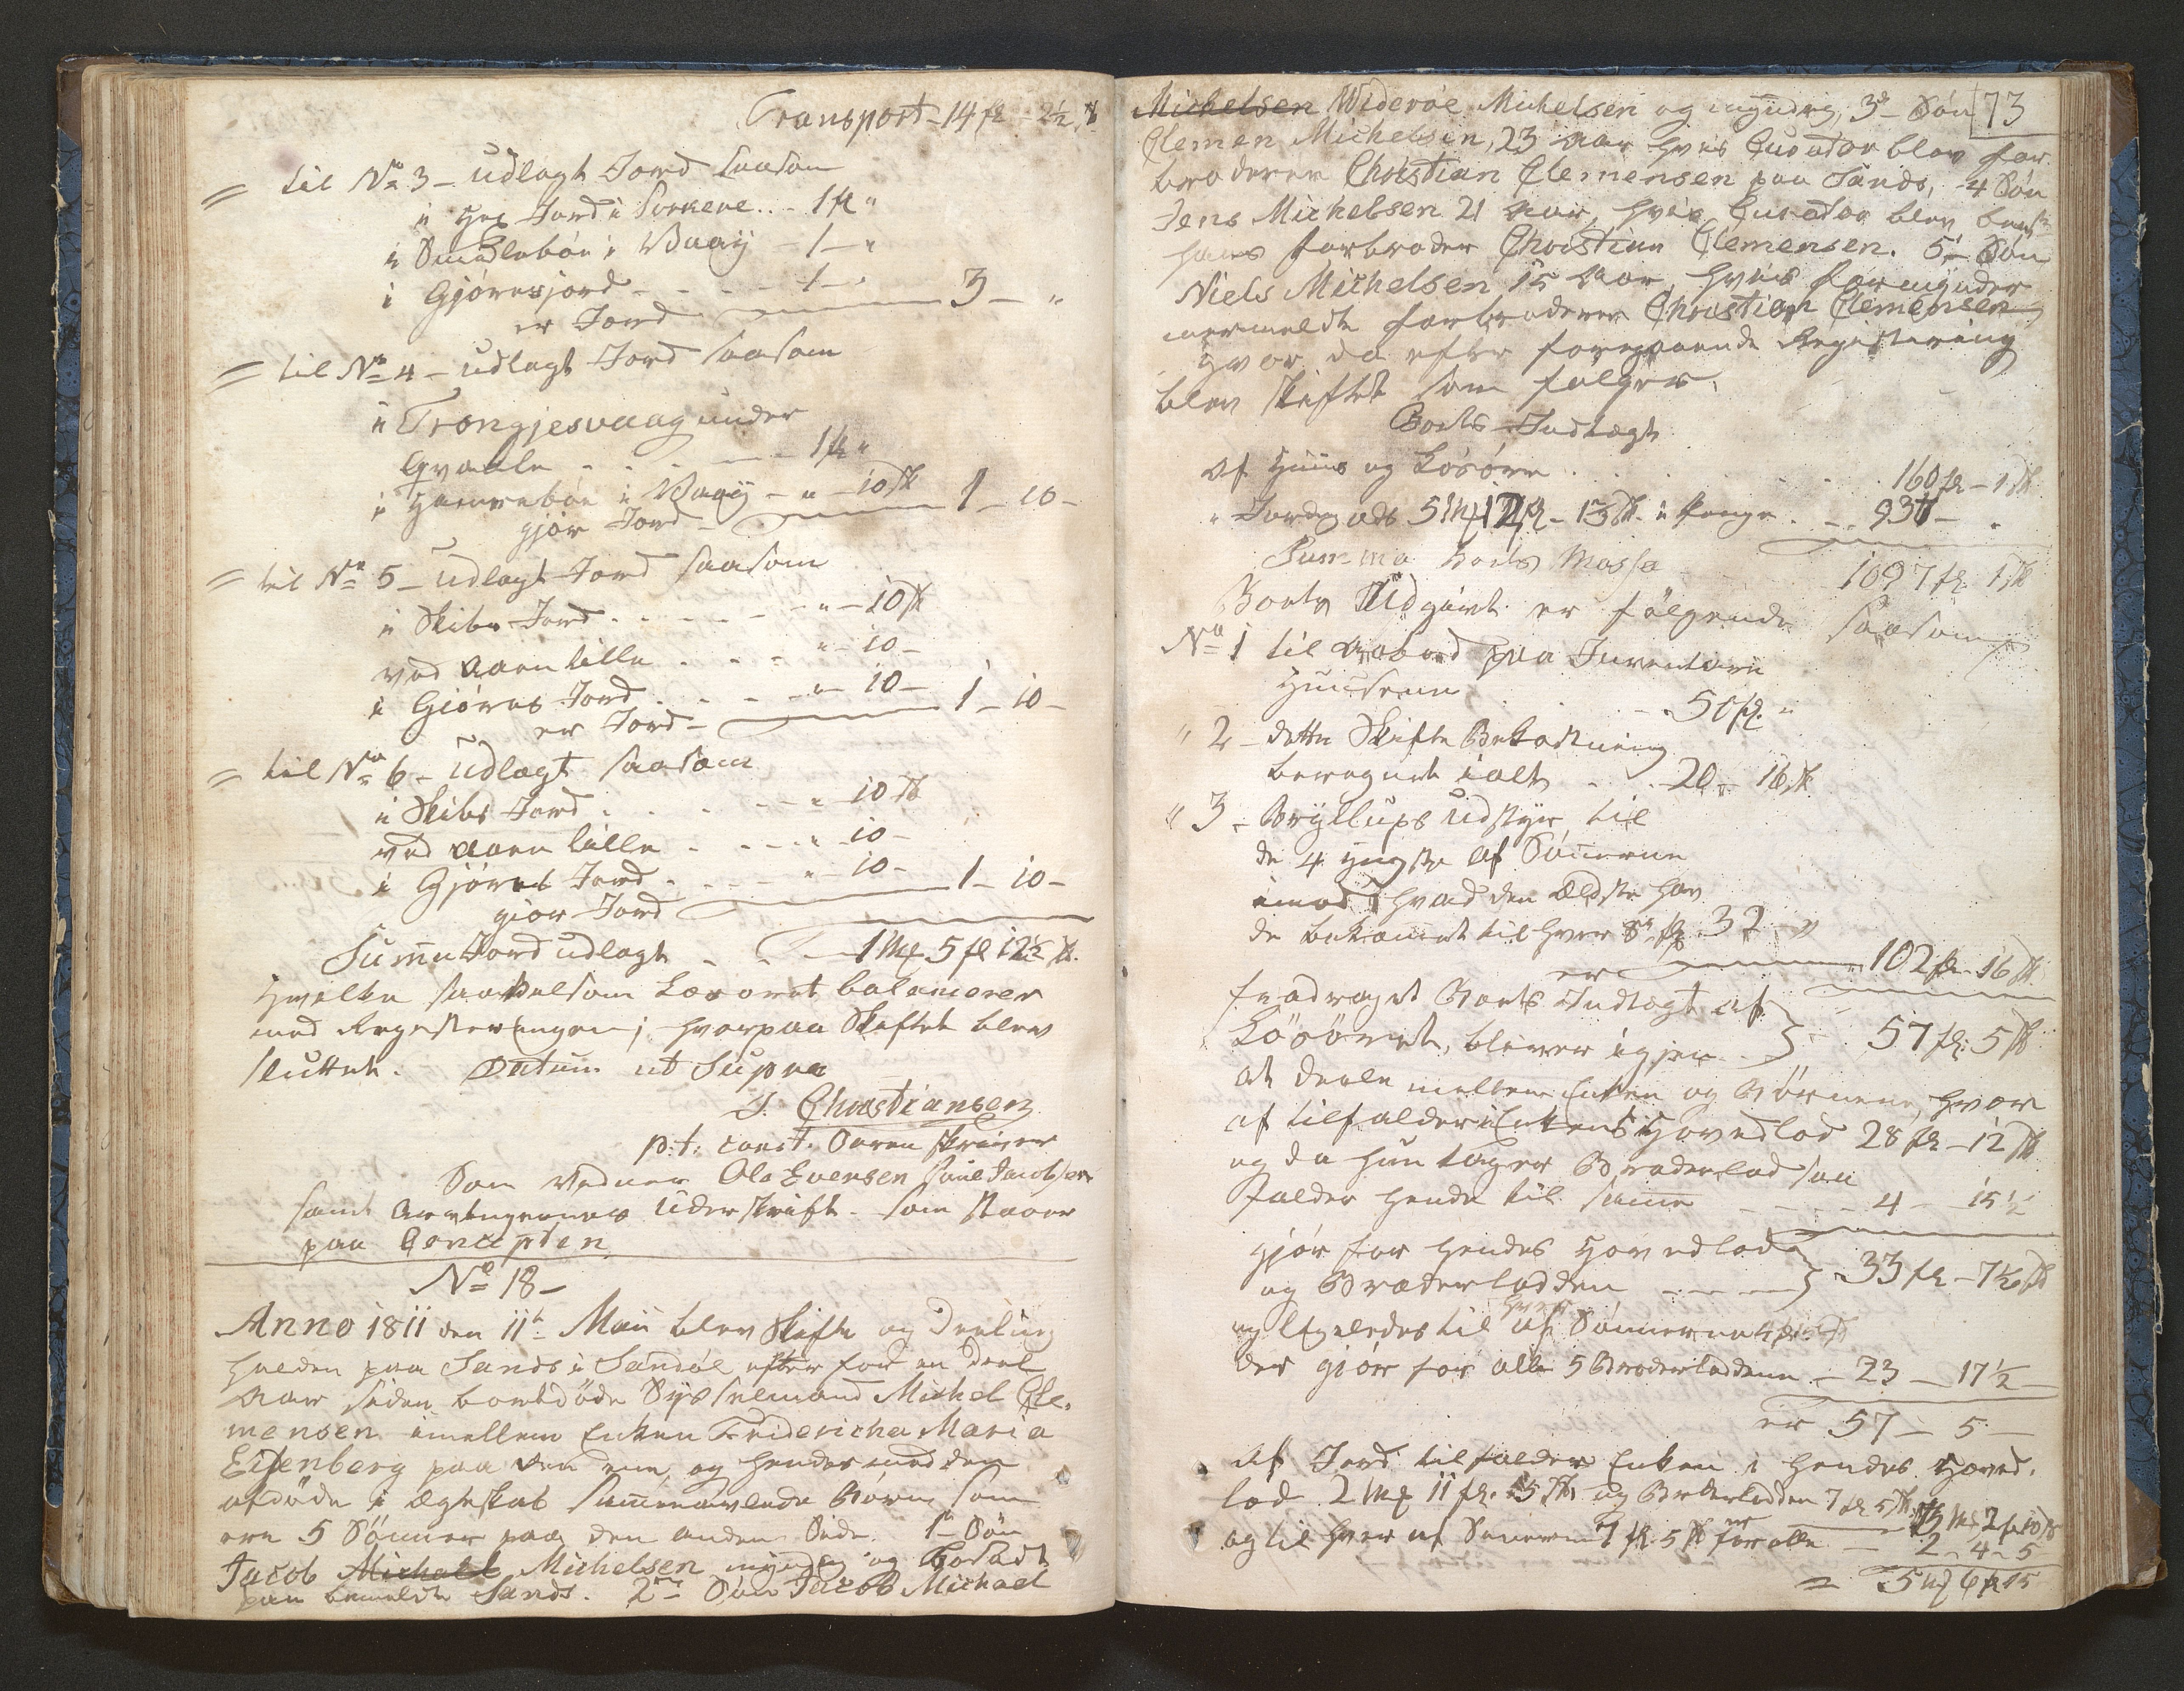 Transport - 14 fl - 2½ sk
til No 3 - udlagt Jord saasom
i Hps Jord i Porkere . . - 1 fl "
i Sundlebøe i Vaaij - 1 - "
i Gjøresjord - - - - 1 - "
er Jord 3 - "
til No 4 - udlagt Jord saasom
i Trongjesvaag under
Qvalle . . . - - - 1 fl "
i Hamrebøe i Vaaij - " - 10 sk
gjør Jord - 1 - 10 -
til No 5 - udlagt Jord saasom
i Skibs Jord . . . . - - - " - 10 sk
ved Aaen lille . . . " - 10 -
i Giøres Jord . . . . " - 10 -
er Jord - 1 - 10 -
til No 6 - udlagt saasom
i Skibs Jord . . . . . - - " - 10 sk
ved Aaen lille . . - - - " - 10 -
i Gjøres Jord . . - - - " - 10 -
giør Jord 1 - 10 -
Suma Jord udlagt - . . - 1 Mf 5 fl 12½ sk.
hvilke saavelsom Løsøret balancerer
med Registeringen; hvorpaa Skiftet blev
sluttet. Datum ut Supra
J. Christiansen
p. t. const. Sorenskriver
Som Vidner Ole Evensen Poul Jacobsen
samt Arvingernes Underskrift - som staaer
paa Concepten
No 18 -
Anno 1811 den 11t Maii blev Skifte og Deeling
holden paa Sands i Sandøe efter for en Deel
Aar siden bortdøde Sysselmand Michel Cle,,
mensen imellem Enken Fridericha Maria
Eisenberg paa den ene, og hendes med den
afdøde i Ægteskab sammenavlede Børn, som
ere 5 Sønner paa den anden Side. 1te Søn
Jacob Michael Michelsen myndig og Bosadt
paa bemeldte Sands. 2den Søn Jacob Michael
73
Michelsen Widerøe Michelsen og myndig, 3de Søn
Clemen Michelsen, 23 Aar hvis Curator blev far-
broderen Christian Clemensen paa Sands, 4 Søn
Jens Michelsen 21 Aar, hvis Curator blev
hans farbroder Christian Clemensen. 5te Søn
Niels Michelsen 15 Aar, hvis formynder
nermeldte farbroderen Christian Clemensen
hvor da efter foregaaende Registering
blev skiftet som følger.
Boets Indtægt
Af Huus og Løsøre . . . . . . . 160 fl - 1 sk
" Jordegods 5 Mf 12 fl - 13 sk i penge . - . 937 - "
Summa Boets Massa 1097 fl 1 sk
Boets Udgivt er følgende saasom
No 1 til Aabod paa Inventarii
Huusene . . - . 50 fl. "
" 2 - dette Skiftes Bekostning
beregnet ialt . . . 20 - 16 sk
" 3 - Bryllups udstyr til
de 4 yngste af Sønnerne
imod hvad den Ældste hav
de bekomet til hver 8 fl 32 - "
er 102 fl - 16 sk
fradraget Boets Indtægt af
Løsøret, bliver igjen . 57 fl: 5 sk
at deele mellem Enken og Børnene, hvor
af tilfalder Enkens Hovedlod 28 fl - 12 sk
og da hun tager Broderlod saa
falder hende til samme - - - - 4 - 15½
gjør for hendes Hovedlod
og Broderlodden - - - - 33 fl - 7½ sk
og Ligeledes til hver af Sønnerne 4 fl 15½
der giør for alle 5 Broderlodderne - 23 - 17½
er 57 - 5 -
Af Jord tilfalder Enken i hendes Hoved,
lod 2 Mf 11 fl. 5 sk og Broderlodden 7 fl 5 sk er 3 Mf 2 fl 10 sk
og til hver af Sønnerne 7 fl. 5 sk for alle - 2 - 4 - 5
= 5 Mf 6 fl 15